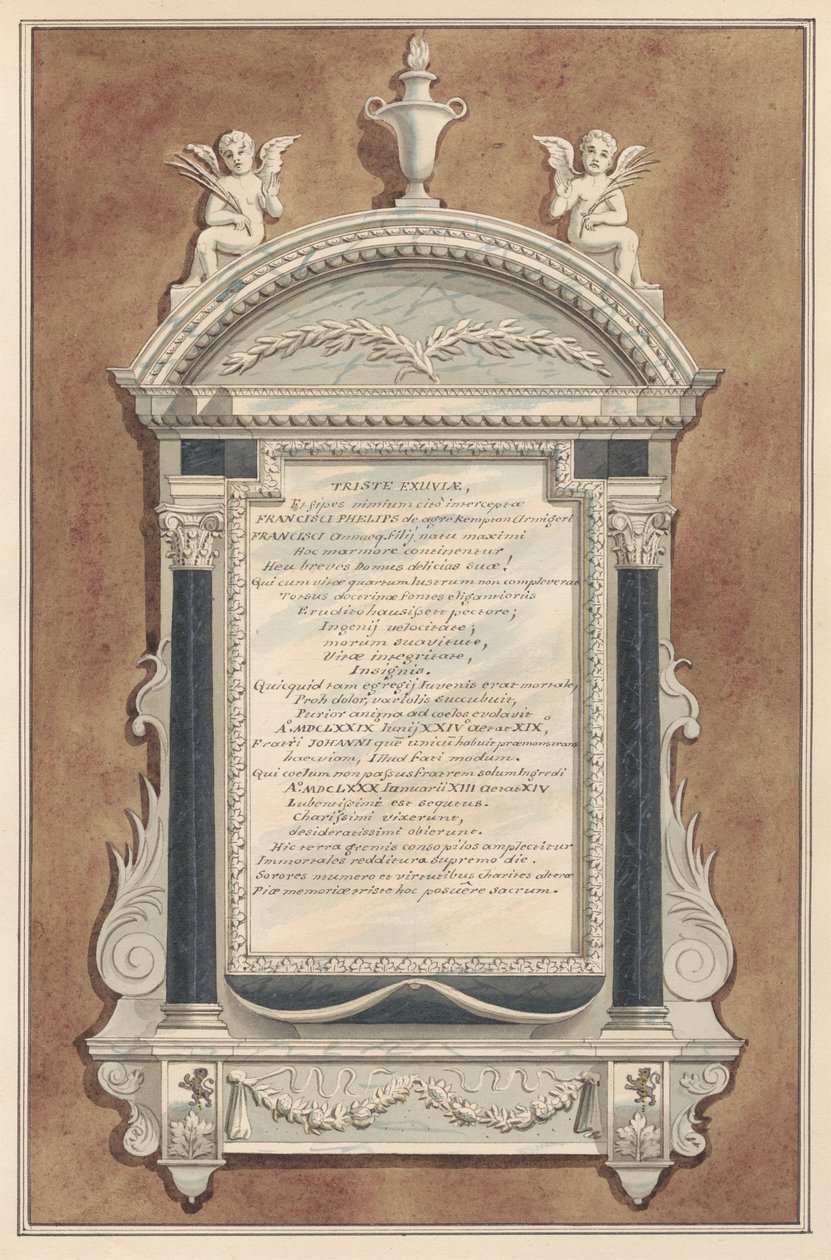 TRISTE EXUVIÆ,
Et spes nimium citò interceptæ
FRANCISCI PHELIPS de agro Kempton Armigeri
FRANCISCI Annaeq. filij natu maximi
Hoc marmore continentur
Heu breves Domus delicias suæ!
Qui cum vitæ quartum lustrum non compleverat
Totsus doctrinæ fontes eligantioriis
Erudito hausissett pectore;
Ingenij velocitate;
morum suavitute,
Vitæ integritate,
Insignis.
Quicquid tam egregij Iuvenis erat mortale,
Proh dolor, variolis succubuit,
Purior anima ad coelos evolavit
Aº. MDCLXXIX Iunij XXIVº aetat XIXº,
Fratri JOHANNI quē unicū habuit præmonstrans
haec viam, Illud fati modum.
Qui coelum non passus fratrem solum Ingredi
Aº. MDCLXXX Ianuarii XIII aetat XIV
Lubentissimè est sequtus.
Charissimi vixerunt,
desideratissimi obierunt.
Hic terra gremis consopilos amplectitur
Immortales redditura supremo die.
Sorores numero et virtutibus charites alteræ
Piæ memoriæ triste hoc posuēre sacrum.